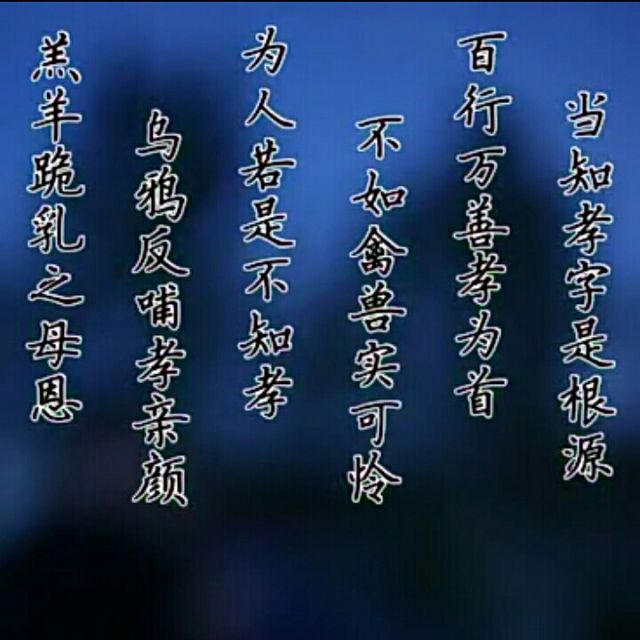 羔羊跪乳之母恩
乌鸦反哺孝亲颜
为人若是不知孝
不如禽兽实可怜
百行万善孝为首
当知孝字是根源